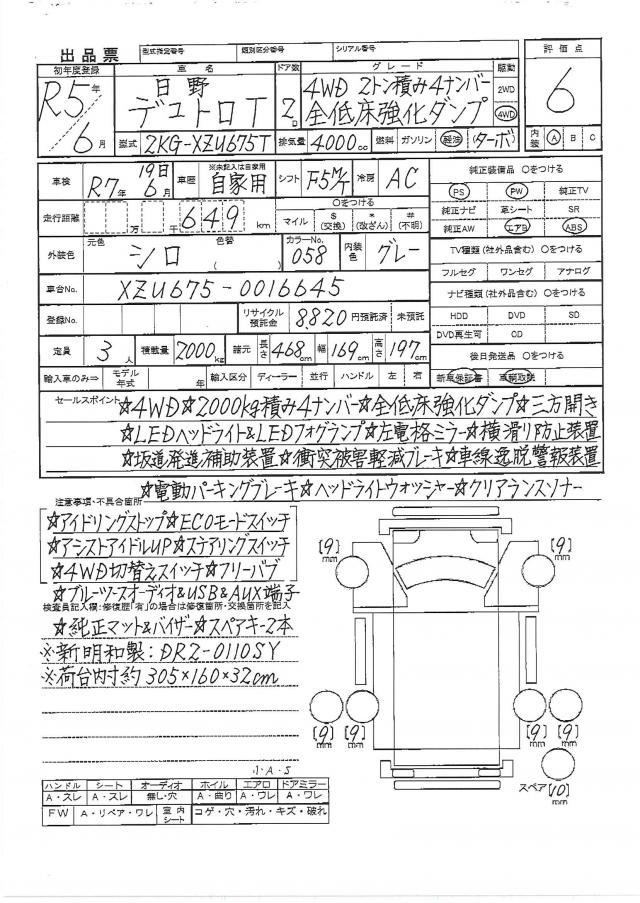 出品票 型式指定番号 類別区分番号 シリアル番号
初年度登録 車名 ドア数 グレード 駆動 評価点
R5年 6月 日野 デュトロT 2口 4WD 2トン積み4ナンバー 全低床強化ダンプ 2WD 4WD 6
型式 2KG-XZU675T 排気量 4000cc 燃料 ガソリン 軽油 (ターボ) 内装 A B C
車検 R7年 6月 19日 車歴 ※未記入は自家用 自家用 シフト F5M/T 冷房 AC
純正装備品 ○をつける
PS PW 純正TV
純正ナビ 革シート SR
純正AW エアB ABS
走行距離 万 千 649 km ○をつける マイル $(交換) *(改ざん) #(不明)
外装色 元色 シロ 色替 ( ) カラーNo. 058 内装色 グレー
TV種類(社外品含む) ○をつける
フルセグ ワンセグ アナログ
車台No. XZU675-0016645
ナビ種類(社外品含む) ○をつける
登録No. リサイクル預託金 8,820 円預託済 未預託
HDD DVD SD
DVD再生可 CD
定員 3人 積載量 2000kg 諸元 長さ 468cm 幅 169cm 高さ 197cm
後日発送品 ○をつける
輸入車のみ⇒ モデル年式 年 輸入区分 ディーラー 並行 ハンドル 左 右 新車保証書 車輌取説
セールスポイント ☆4WD☆2000kg積み4ナンバー☆全低床強化ダンプ☆三方開き
☆LEDヘッドライト&LEDフォグランプ☆左電格ミラー☆横滑り防止装置
☆坂道発進補助装置☆衝突被害軽減ブレーキ☆車線逸脱警報装置
☆電動パーキングブレーキ☆ヘッドライトウォッシャー☆クリアランスソナー
注意事項・不具合箇所
☆アイドリングストップ☆ECOモードスイッチ
☆アシストアイドルUP☆ステアリングスイッチ
☆4WD切替えスイッチ☆フリーハブ
☆ブルーツースオーディオ&USB&AUX端子
検査員記入欄:修復歴「有」の場合は修復箇所・交換箇所を記入
☆純正マット&バイザー☆スペアキー2本
※新明和製:DR2-0110SY
※荷台内寸約305×160×32cm
[9]mm [9]mm
[9]mm [9]mm [9]mm [9]mm
スペア [10]mm
小A-S
ハンドル シート オーディオ ホイル エアロ ドアミラー
A・スレ A・スレ 無し・穴 A・曲り A・ワレ A・ワレ
FW A・リペア・ワレ 室内シート コゲ・穴・汚れ・キズ・破れ